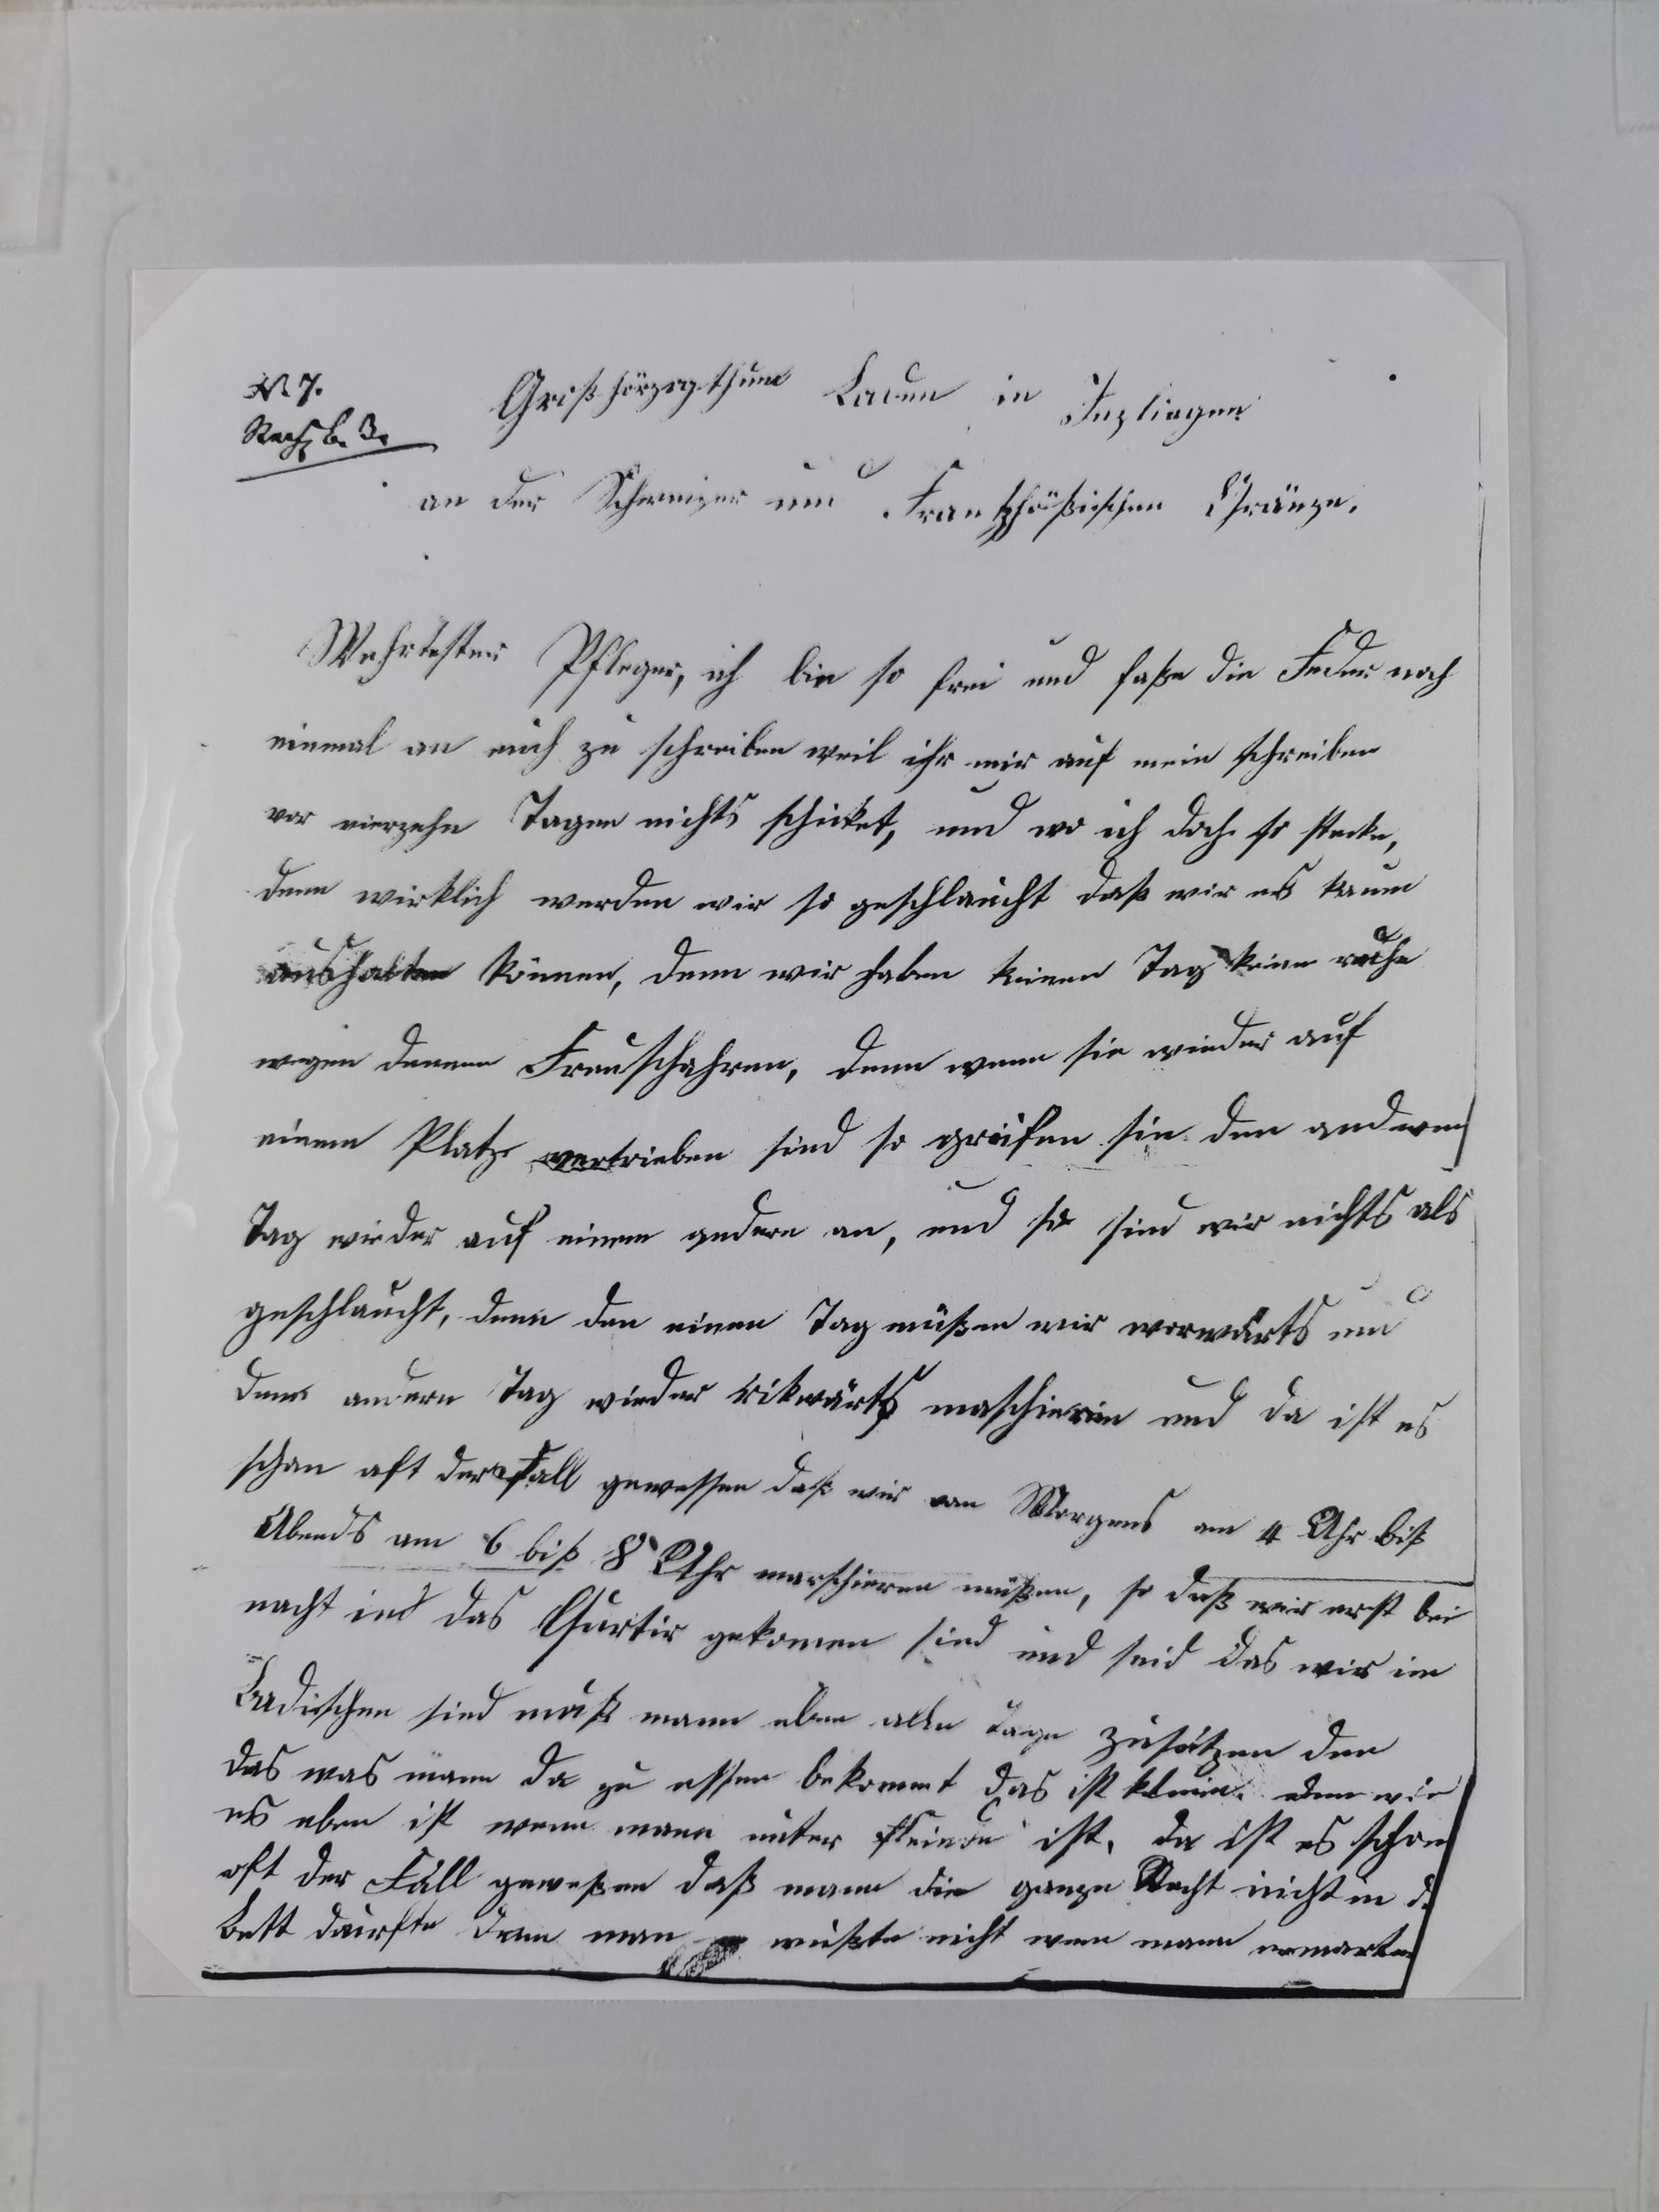 N. 7.
Rech. b. 3.
Großhörzogthum Baden in Inzlingen
an der Schweizer und Frantzhößischen Gränze.
Wehrtester Pfleger, ich bin so frei und faße die Feder noch
einmal an euch zu schreiben weil ihr mir auf mein schreiben
vor vierzehn Tagen nichts schicket, und wo ich doch so stecke,
denn wirklich werden wir so geschlaucht daß wir es kaum
aushalten können, denn wir haben keinen Tag keine ruhe
wegen denen Freuschahren, denn wenn sie wieder auf
einem Platz vertrieben sind so greifen sie den andern
Tag wieder auf einem andern an, und so sind wir nichts als
geschlaucht, denn den einen Tag müßen wir vorwärts und
denn andern Tag wieder rikwärts maschieren und da ist es
schon oft der Fall gewessen daß wir von Morgens am 4 Uhr biß
Abends am 6 biß 8 Uhr marschieren müßen, so daß wir erst bei
nacht ins das Quartir gekomen sind und seid das wir im
Badischen sind muß mann eben alle Tage zusätzen den
das was mann da zu essen bekommt das ist klein. denn wie
es eben ist wenn mann unter Feinde ist, da ist es schon
oft der Fall geweßen daß mann die ganze Nacht nicht in d.
Bett dürfte denn man wußte nicht wen mann erwarten